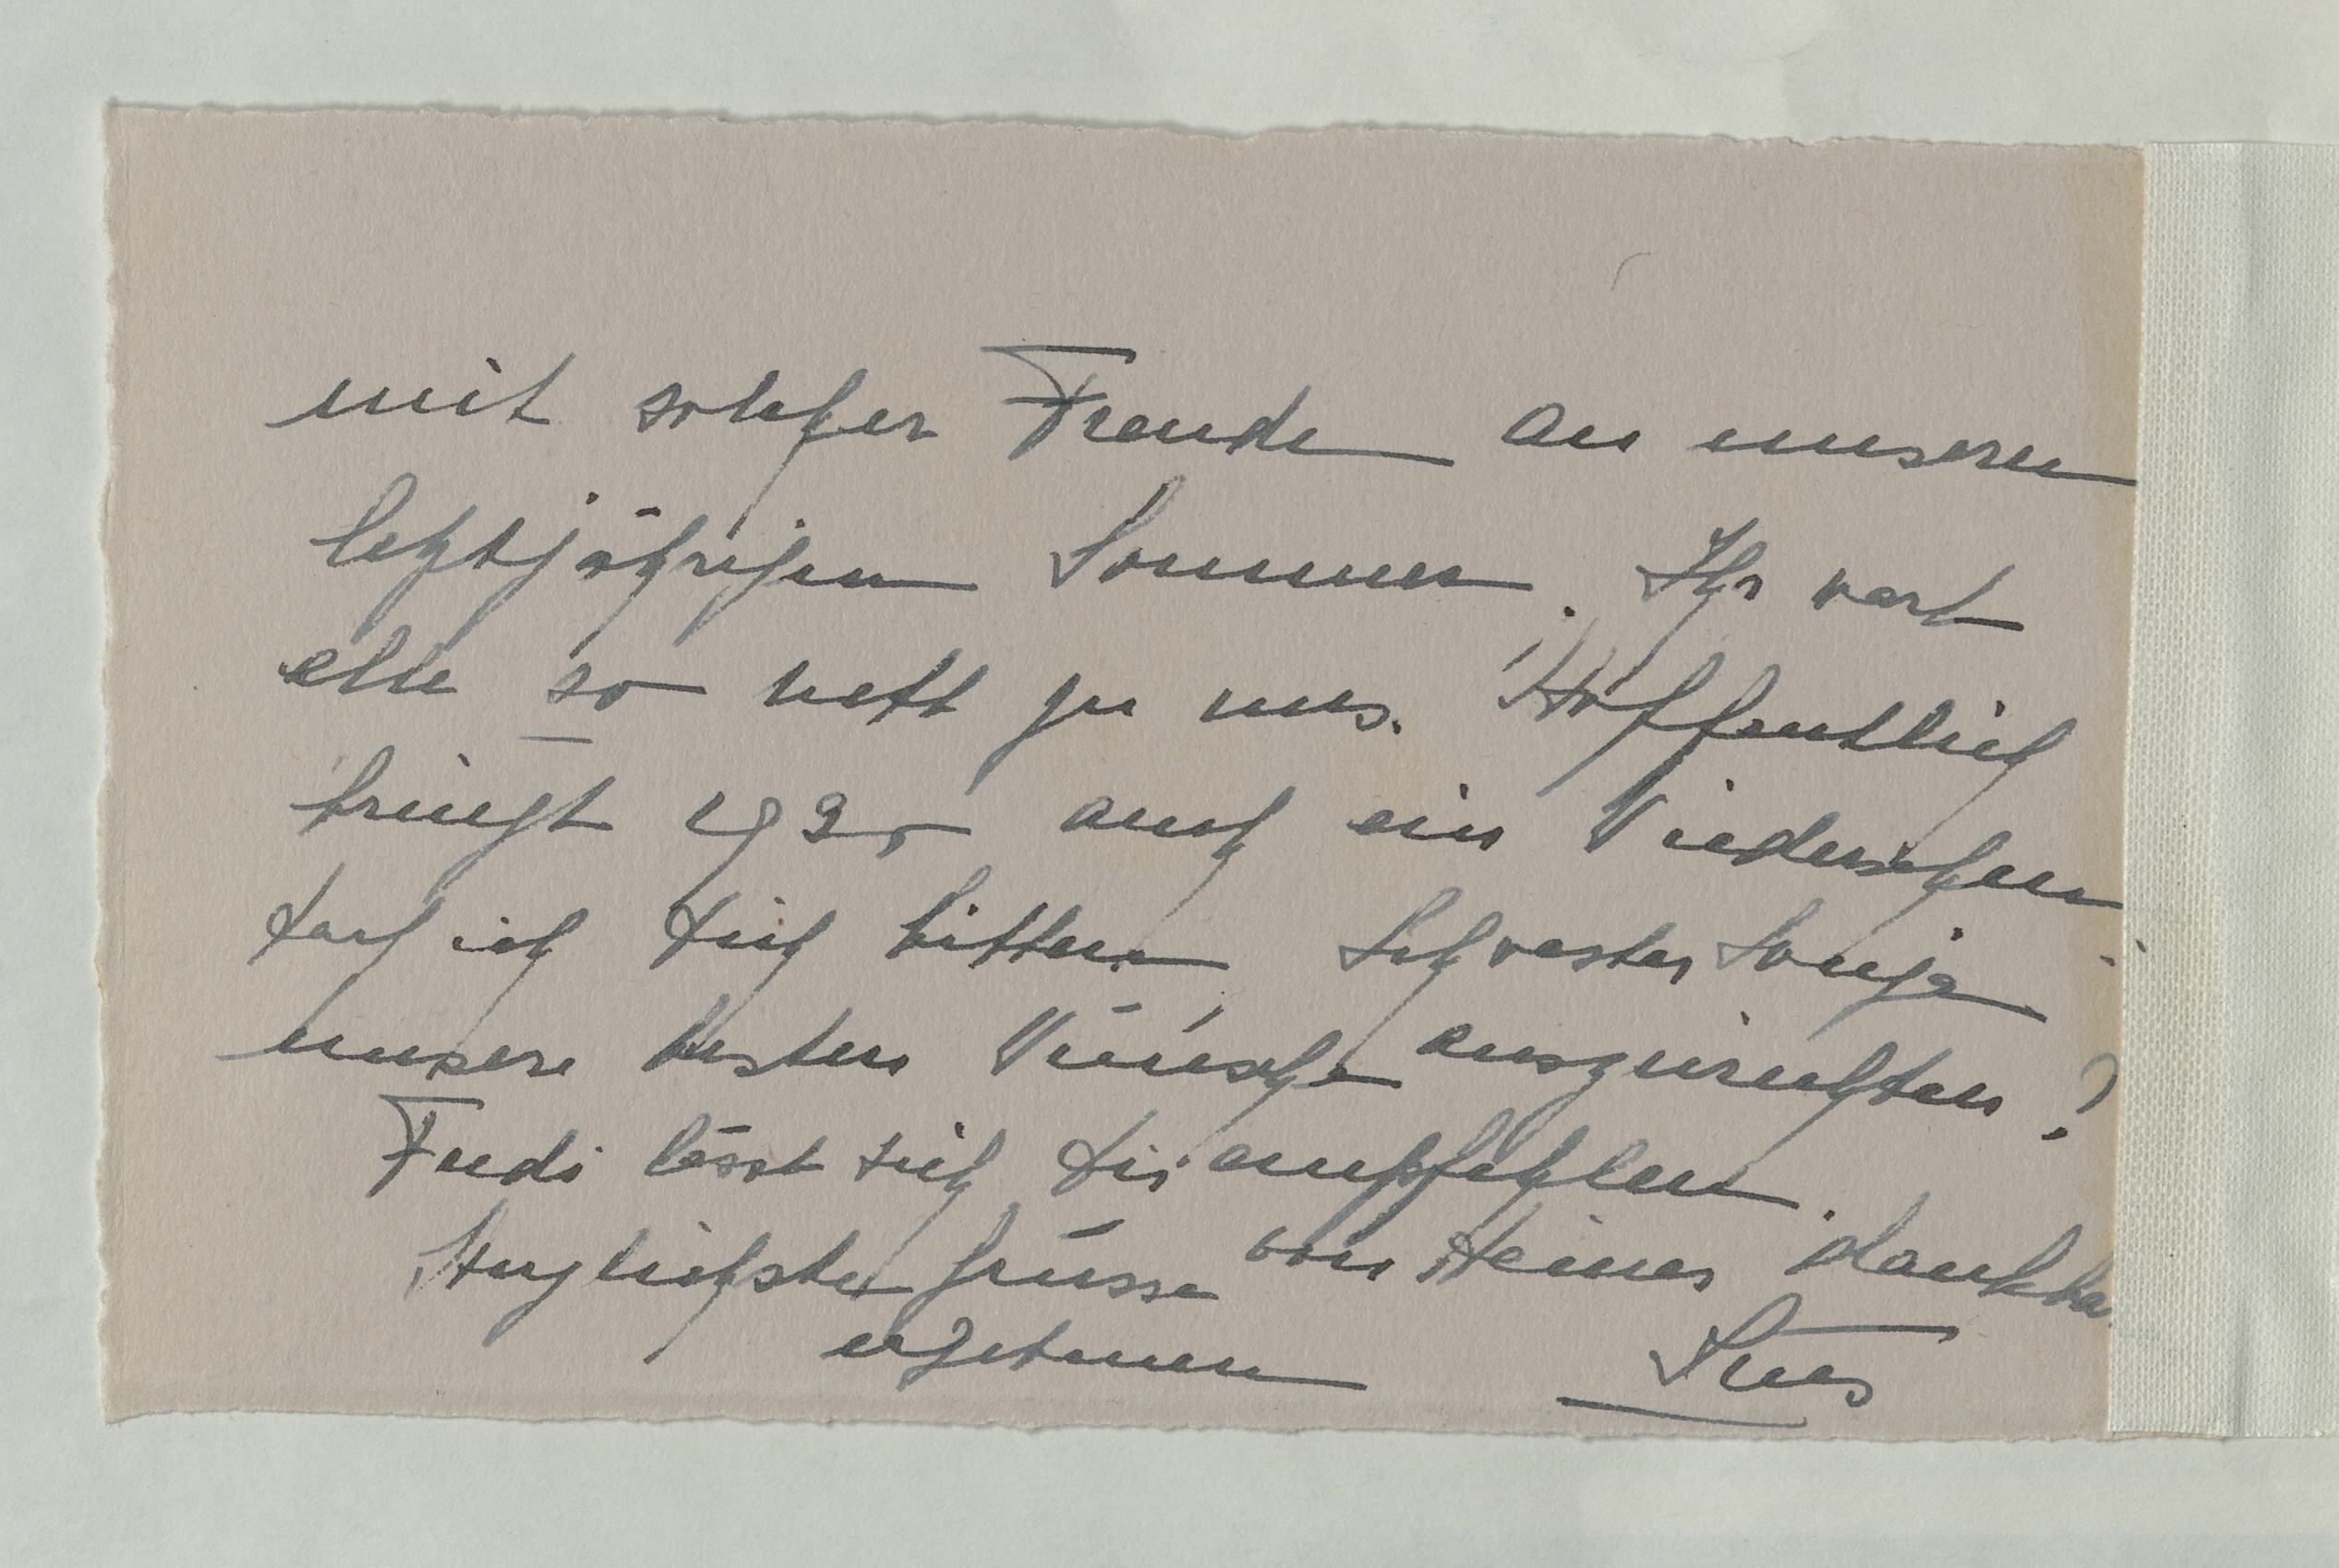 mit solcher Freude an unseren
letztjährigen Sommer. Ihr wart
alle so nett zu uns. Hoffentlich
bringt 1925 auch ein Wiedersehen.
Darf ich Dich bitten Schwester Sonja
unsere besten Wünsche auszurichten?
Fredi lässt sich Dir empfehlen.
Herzlichste Grüsse von Deiner dankba
ergebenen